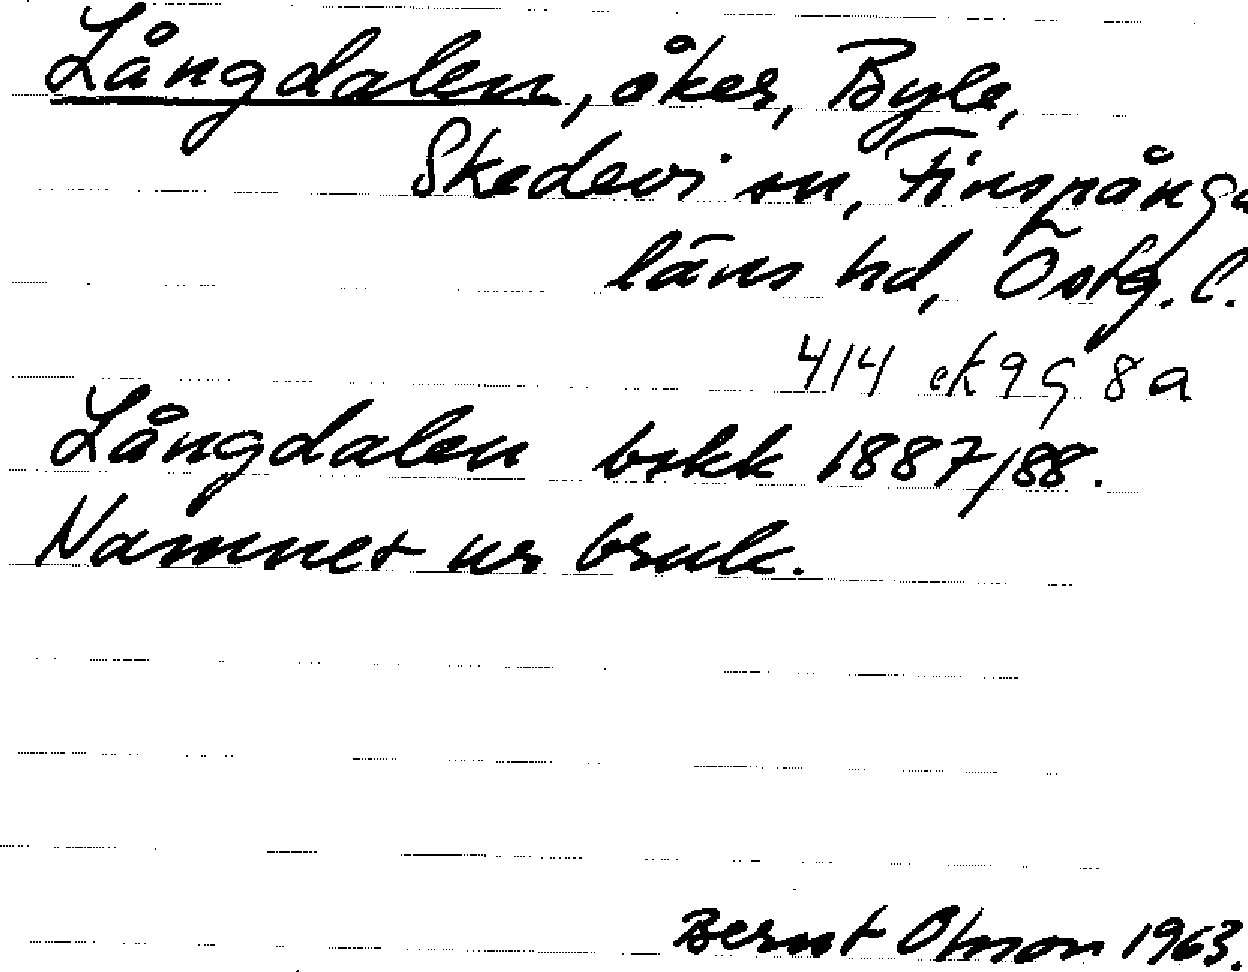 Långdalen, åker, Byle,
Skedevi sn, Finspånga
läns hd, Östg. l.
414 ek 9g 8a
Långdalen bskk 1887/88.
Namnet ur bruk.
Bernt Olsson 1963.